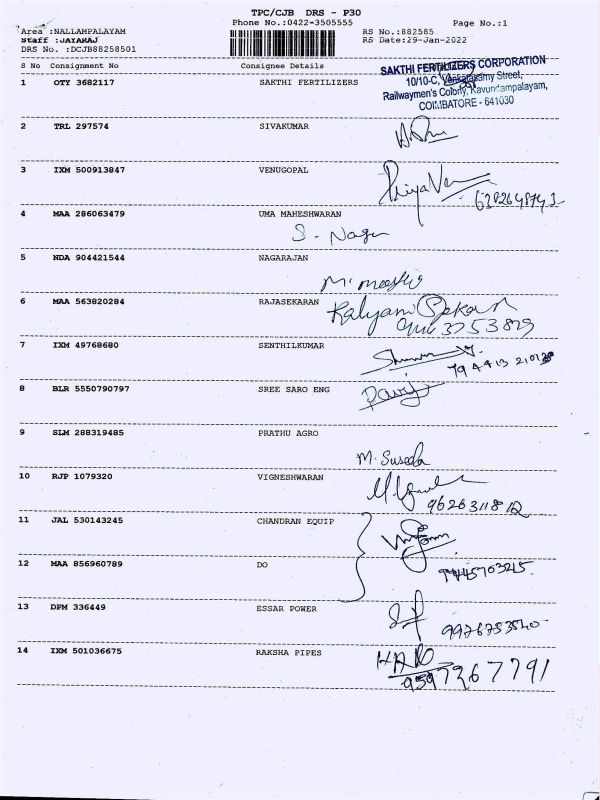 TPC/CJB DRS - P30
Phone No.:0422-3505555 Page No.:1
Area :NALLAMPALAYAM RS No.:882585
Staff :JAYARAJ RS Date:29-Jan-2022
DRS No. :DCJB88258501
S No Consignment No Consignee Details
SAKTHI FERTILIZERS CORPORATION
10/10-C, Venkatasamy Street,
Railwaymen's Colony, Kavundampalayam,
COIMBATORE - 641030
1 OTY 3682117 SAKTHI FERTILIZERS
2 TRL 297574 SIVAKUMAR
3 IXM 500913847 VENUGOPAL
4 MAA 286063479 UMA MAHESHWARAN
S. Naga
5 NDA 904421544 NAGARAJAN
6 MAA 563820284 RAJASEKARAN
Kalyani Sekar
7 IXM 49768680 SENTHILKUMAR
8 BLR 5550790797 SREE SARO ENG
9 SLM 288319485 PRATHU AGRO
M. Suseela
10 RJP 1079320 VIGNESHWARAN
9626311812
11 JAL 530143245 CHANDRAN EQUIP
12 MAA 856960789 DO
9445703215
13 DPM 336449 ESSAR POWER
9926753540
14 IXM 501036675 RAKSHA PIPES
HARI
9597267791